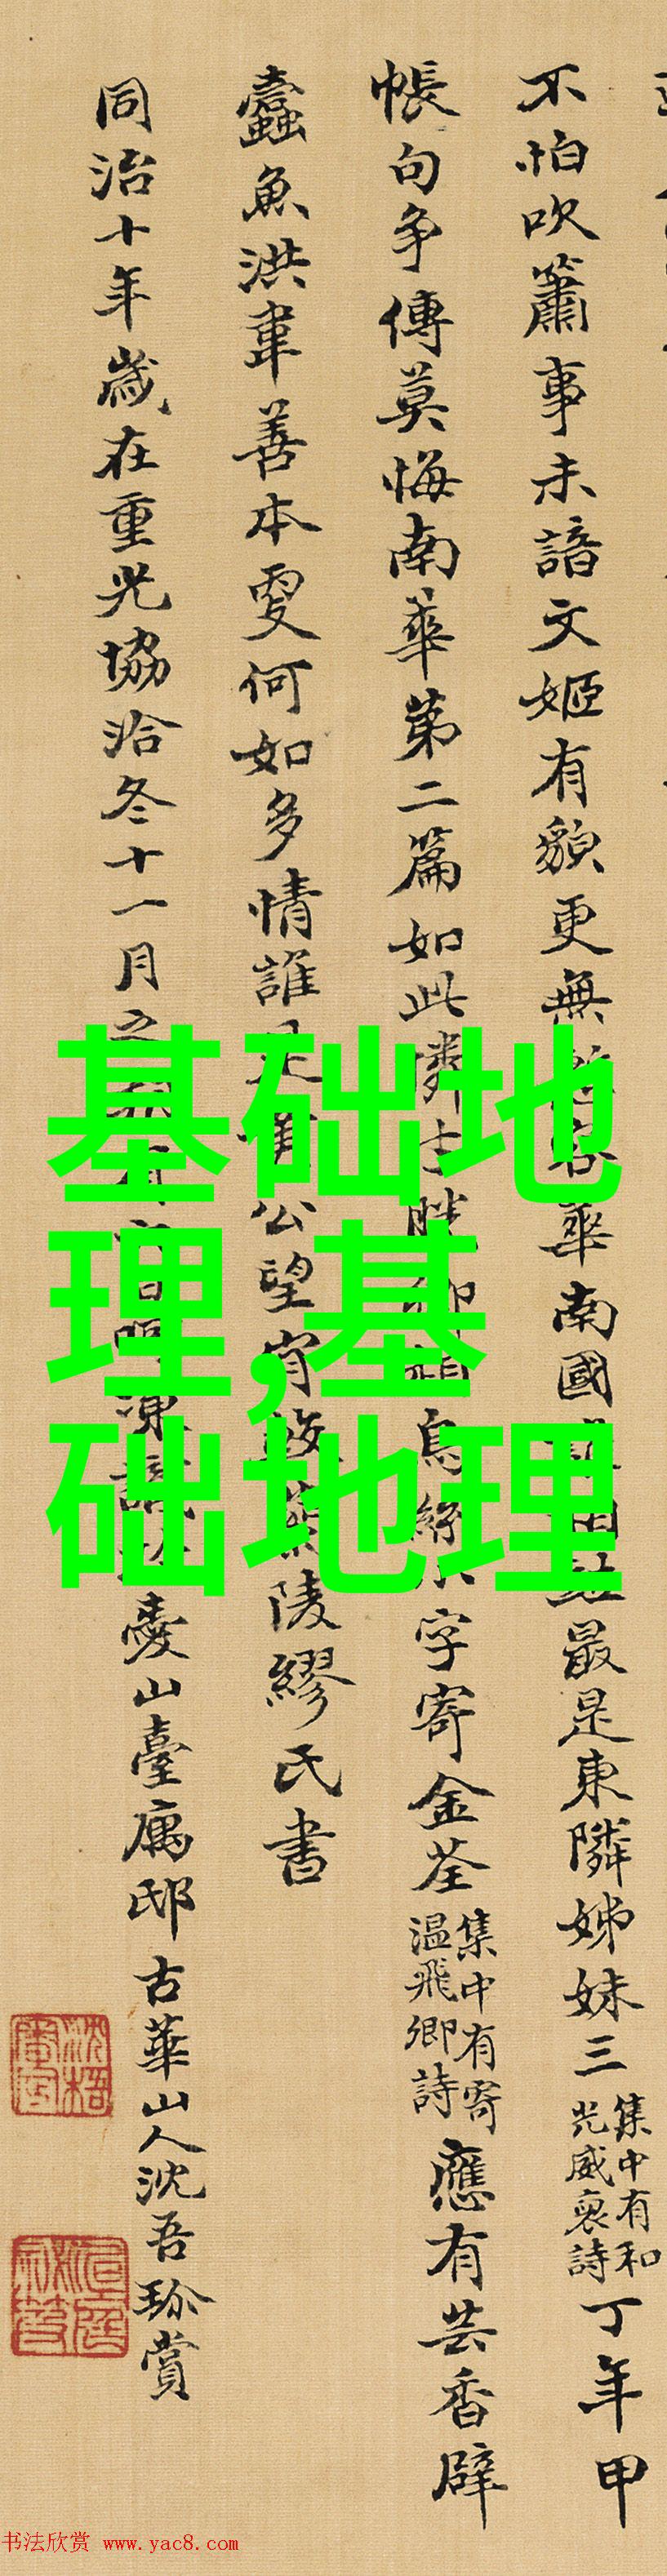 不怕吹簫事未諳文姬有貌更無
華南國
最是東隣姊妹三
集中有和
光威裒詩
丁年甲
帳句争傳莫悔南華第二篇如此憐
烏絲小字寄金荃
集中有寄
温飛卿詩
應有芸香辟
蠹魚洪韋善本更何如多情誰是
公望肯
陵繆氏書
同治十年歲在重光協洽冬十一月之
愛山臺寓邸古華山人沈吾珍賞
基础地
理,基
础地理
书法欣赏 www.yac8.com